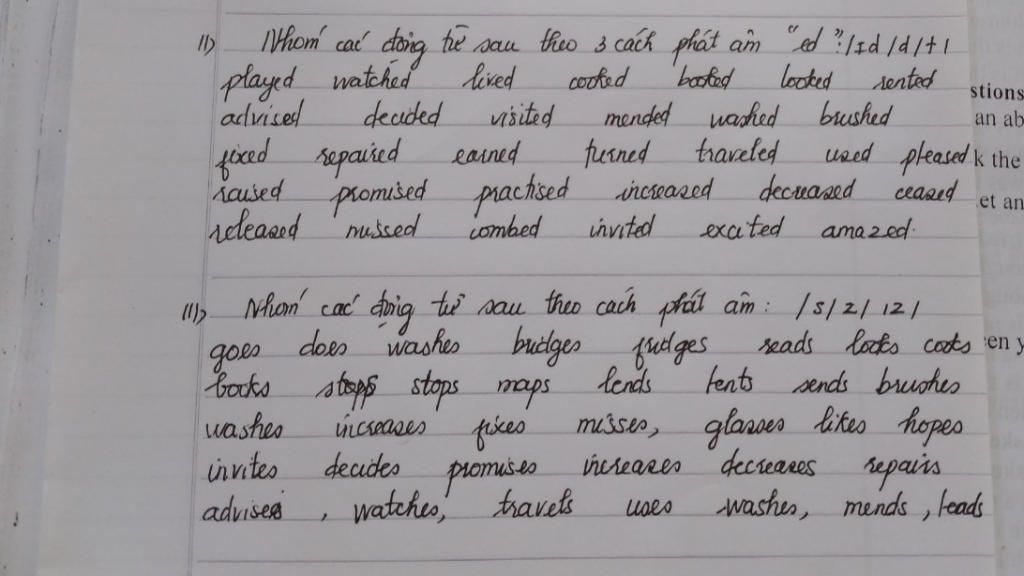 II) Nhóm các động từ sau theo 3 cách phát âm "ed": /ɪd/d/t/
played watched lived cooked booked looked rented
advised decided visited mended washed brushed
fixed repaired earned turned traveled used pleased
raised promised practised increased decreased ceased
released missed combed invited excited amazed.
III) Nhóm các động từ sau theo cách phát âm: /s/z/ ɪz/
goes does washes budges fudges reads looks cooks
books stops maps lends tents sends brushes
washes increases fixes misses, glasses likes hopes
invites decides promises increases decreases repairs
advises, watches, travels uses washes, mends, leads
stions
an ab
k the
et an
en y